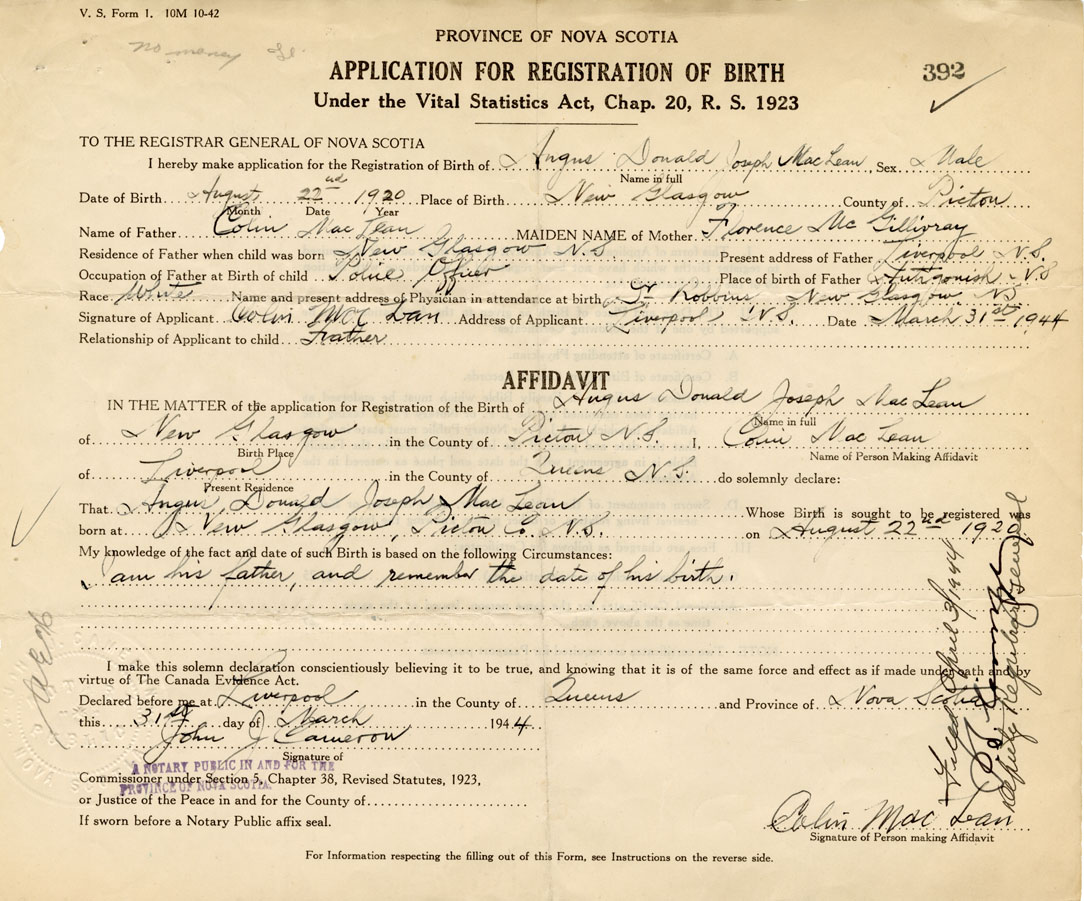 V. S. Form 1. 10M 10-42
no money
PROVINCE OF NOVA SCOTIA
APPLICATION FOR REGISTRATION OF BIRTH
392
Under the Vital Statistics Act, Chap. 20, R. S. 1923
TO THE REGISTRAR GENERAL OF NOVA SCOTIA
I hereby make application for the Registration of Birth of Angus Donald Joseph MacLean Sex Male
Name in full
Date of Birth August 22nd 1920 Place of Birth New Glasgow County of Pictou
Month Date Year
Name of Father Colin MacLean MAIDEN NAME of Mother Florence McGillivray
Residence of Father when child was born New Glasgow N.S Present address of Father Liverpool N.S.
Occupation of Father at Birth of child Police Officer Place of birth of Father Antigonish N.S
Race White Name and present address of Physician in attendance at birth Dr Robbins New Glasgow NS
Signature of Applicant Colin MacLean Address of Applicant Liverpool N.S. Date March 31st 1944
Relationship of Applicant to child Father
AFFIDAVIT
IN THE MATTER of the application for Registration of the Birth of Angus Donald Joseph MacLean
Name in full
of New Glasgow in the County of Pictou N.S. I, Colin MacLean
Birth Place Name of Person Making Affidavit
of Liverpool in the County of Queens N.S. do solemnly declare:
Present Residence
That Angus Donald Joseph MacLean Whose Birth is sought to be registered was
born at New Glasgow, Pictou Co. N.S. on August 22nd 1920
My knowledge of the fact and date of such Birth is based on the following Circumstances:
I am his father, and remember the date of his birth.
I make this solemn declaration conscientiously believing it to be true, and knowing that it is of the same force and effect as if made under oath and by
virtue of The Canada Evidence Act.
Declared before me at Liverpool in the County of Queens and Province of Nova Scotia
this 31st day of March 1944
John J Cameron
Signature of
A NOTARY PUBLIC IN AND FOR THE
PROVINCE OF NOVA SCOTIA.
Commissioner under Section 5, Chapter 38, Revised Statutes, 1923,
or Justice of the Peace in and for the County of
If sworn before a Notary Public affix seal.
Colin MacLean
Signature of Person making Affidavit
For Information respecting the filling out of this Form, see Instructions on the reverse side.
Filed April 3/1944
Deputy Registrar General